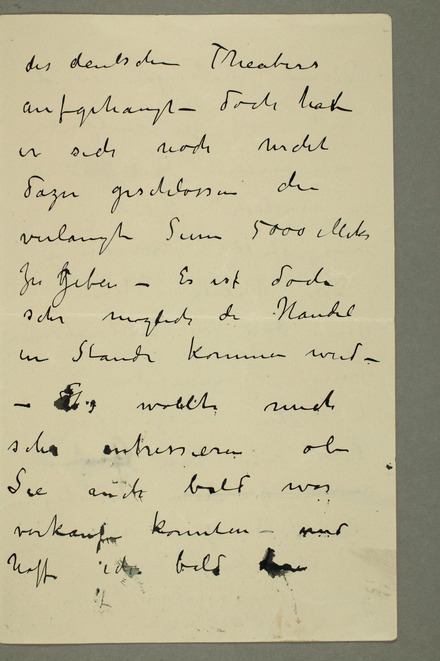 des deutschen Theaters
aufgehangt – doch hat
er sich noch nicht
dazu geschlossen die
verlangte Sum 5000 Marks
zu geben – Es ist doch
sehr moglich de Handel
in Stande kommen wird –
– wollte mich
sehr intressieren ob
Sie auch bald was
verkaufe konnten – und
hoff ich bald